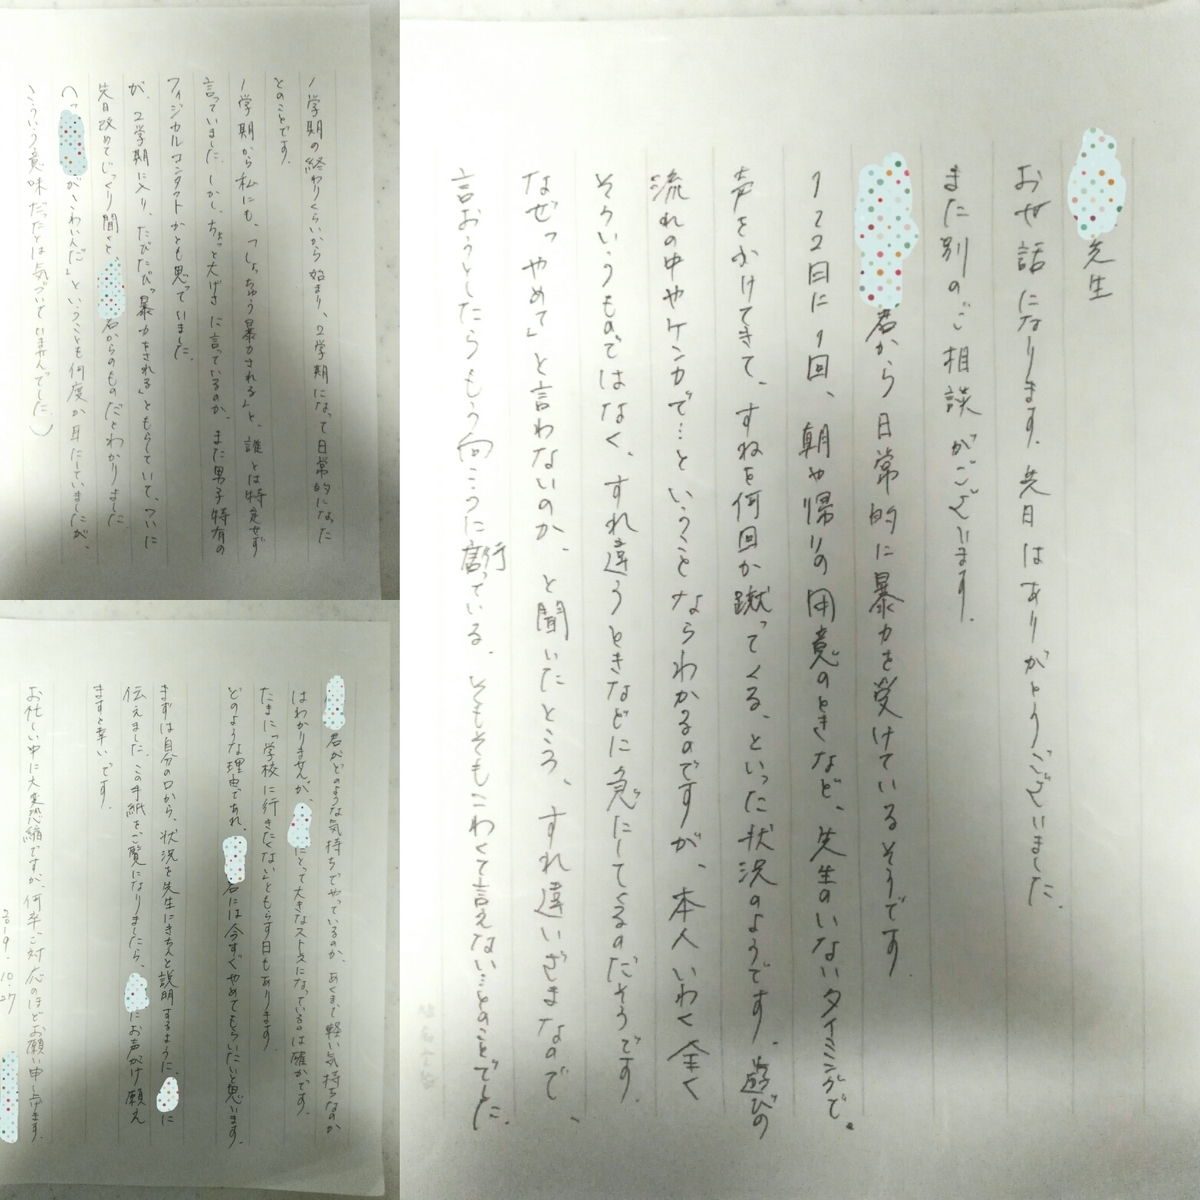 先生
お世話になります。先日はありがとうございました。
また別のご相談がございます。
君から日常的に暴力を受けているそうです。
1~2日に1回、朝や帰りの用意のときなど、先生のいないタイミングで。
声をかけてきて、すねを何回か蹴ってくる、といった状況のようです。遊びの
流れの中やケンカで…ということならわかるのですが、本人いわく全く
そういうものではなく、すれ違うときなどに急にしてくるのだそうです。
なぜ「やめて」と言わないのか、と聞いたところ、すれ違いざまなので、
言おうとしたらもう向こうに行っている。そもそもこわくて言えない…とのことでした。
1学期の終わりくらいから始まり、2学期になって日常的になった
とのことです。
1学期から私にも、「しょっちゅう暴力される」と、誰とは特定せず
言っていました。しかし、ちょっと大げさに言っているのか、また男子特有の
フィジカルコンタクトかとも思っていました。
が、2学期に入り、たびたび「暴力をされる」ともらしていて、ついに
先日改めてじっくり聞くと、君からのものだとわかりました
(「がこわいんだ」ということも何度か耳にしていましたが、
こういう意味だったとは気づいていませんでした。)
君がどのような気持ちでやっているのか、あくまで軽い気持ちなのか
はわかりませんが、にとって大きなストレスになっているのは確かです。
たまに「学校に行きたくない」ともらす日もあります。
どのような理由であれ、君には今すぐやめてもらいたいと思います。
まずは自分の口から、状況を先生にきちんと説明するように、に
伝えました。この手紙をご覧になりましたら、にお声がけ願え
ますと幸いです。
お忙しい中に大変恐縮ですが、何卒ご対応のほどお願い申し上げます。
2019.10.27